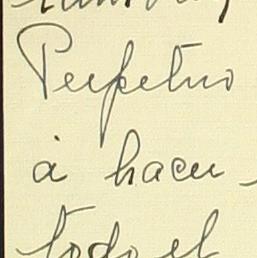 Perpetuo
à hacer-
todo el